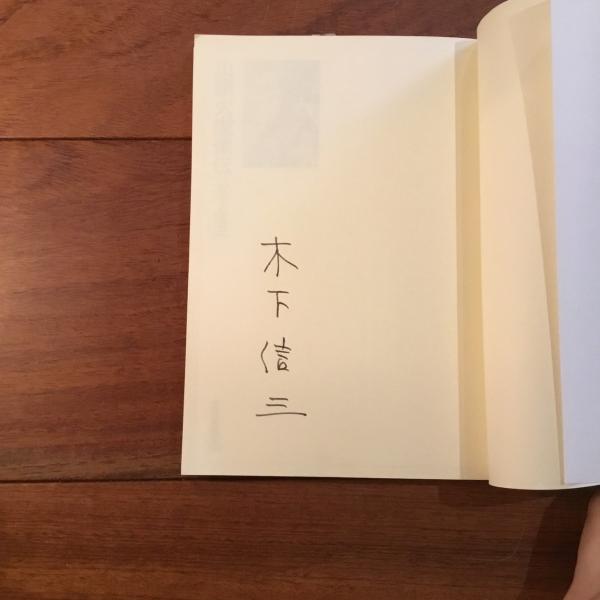 木下信三